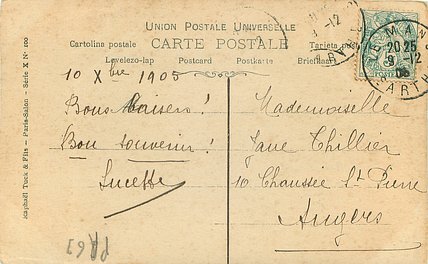 UNION POSTALE UNIVERSELLE
CARTE POSTALE
Cartolina postale
Tarjeta
Levelezo-lap Postcard Postkarte Briefkaart
LE MANS
20 25
9 -12
05
SARTHE
10 Xbre 1905
Bons Baisers!
Bon souvenir!
Lucette
Mademoiselle
Jane Thillier
10 Chaussée St Pierre
Angers
Raphaël Tuck & Fils — Paris-Salon - Série X N° 100